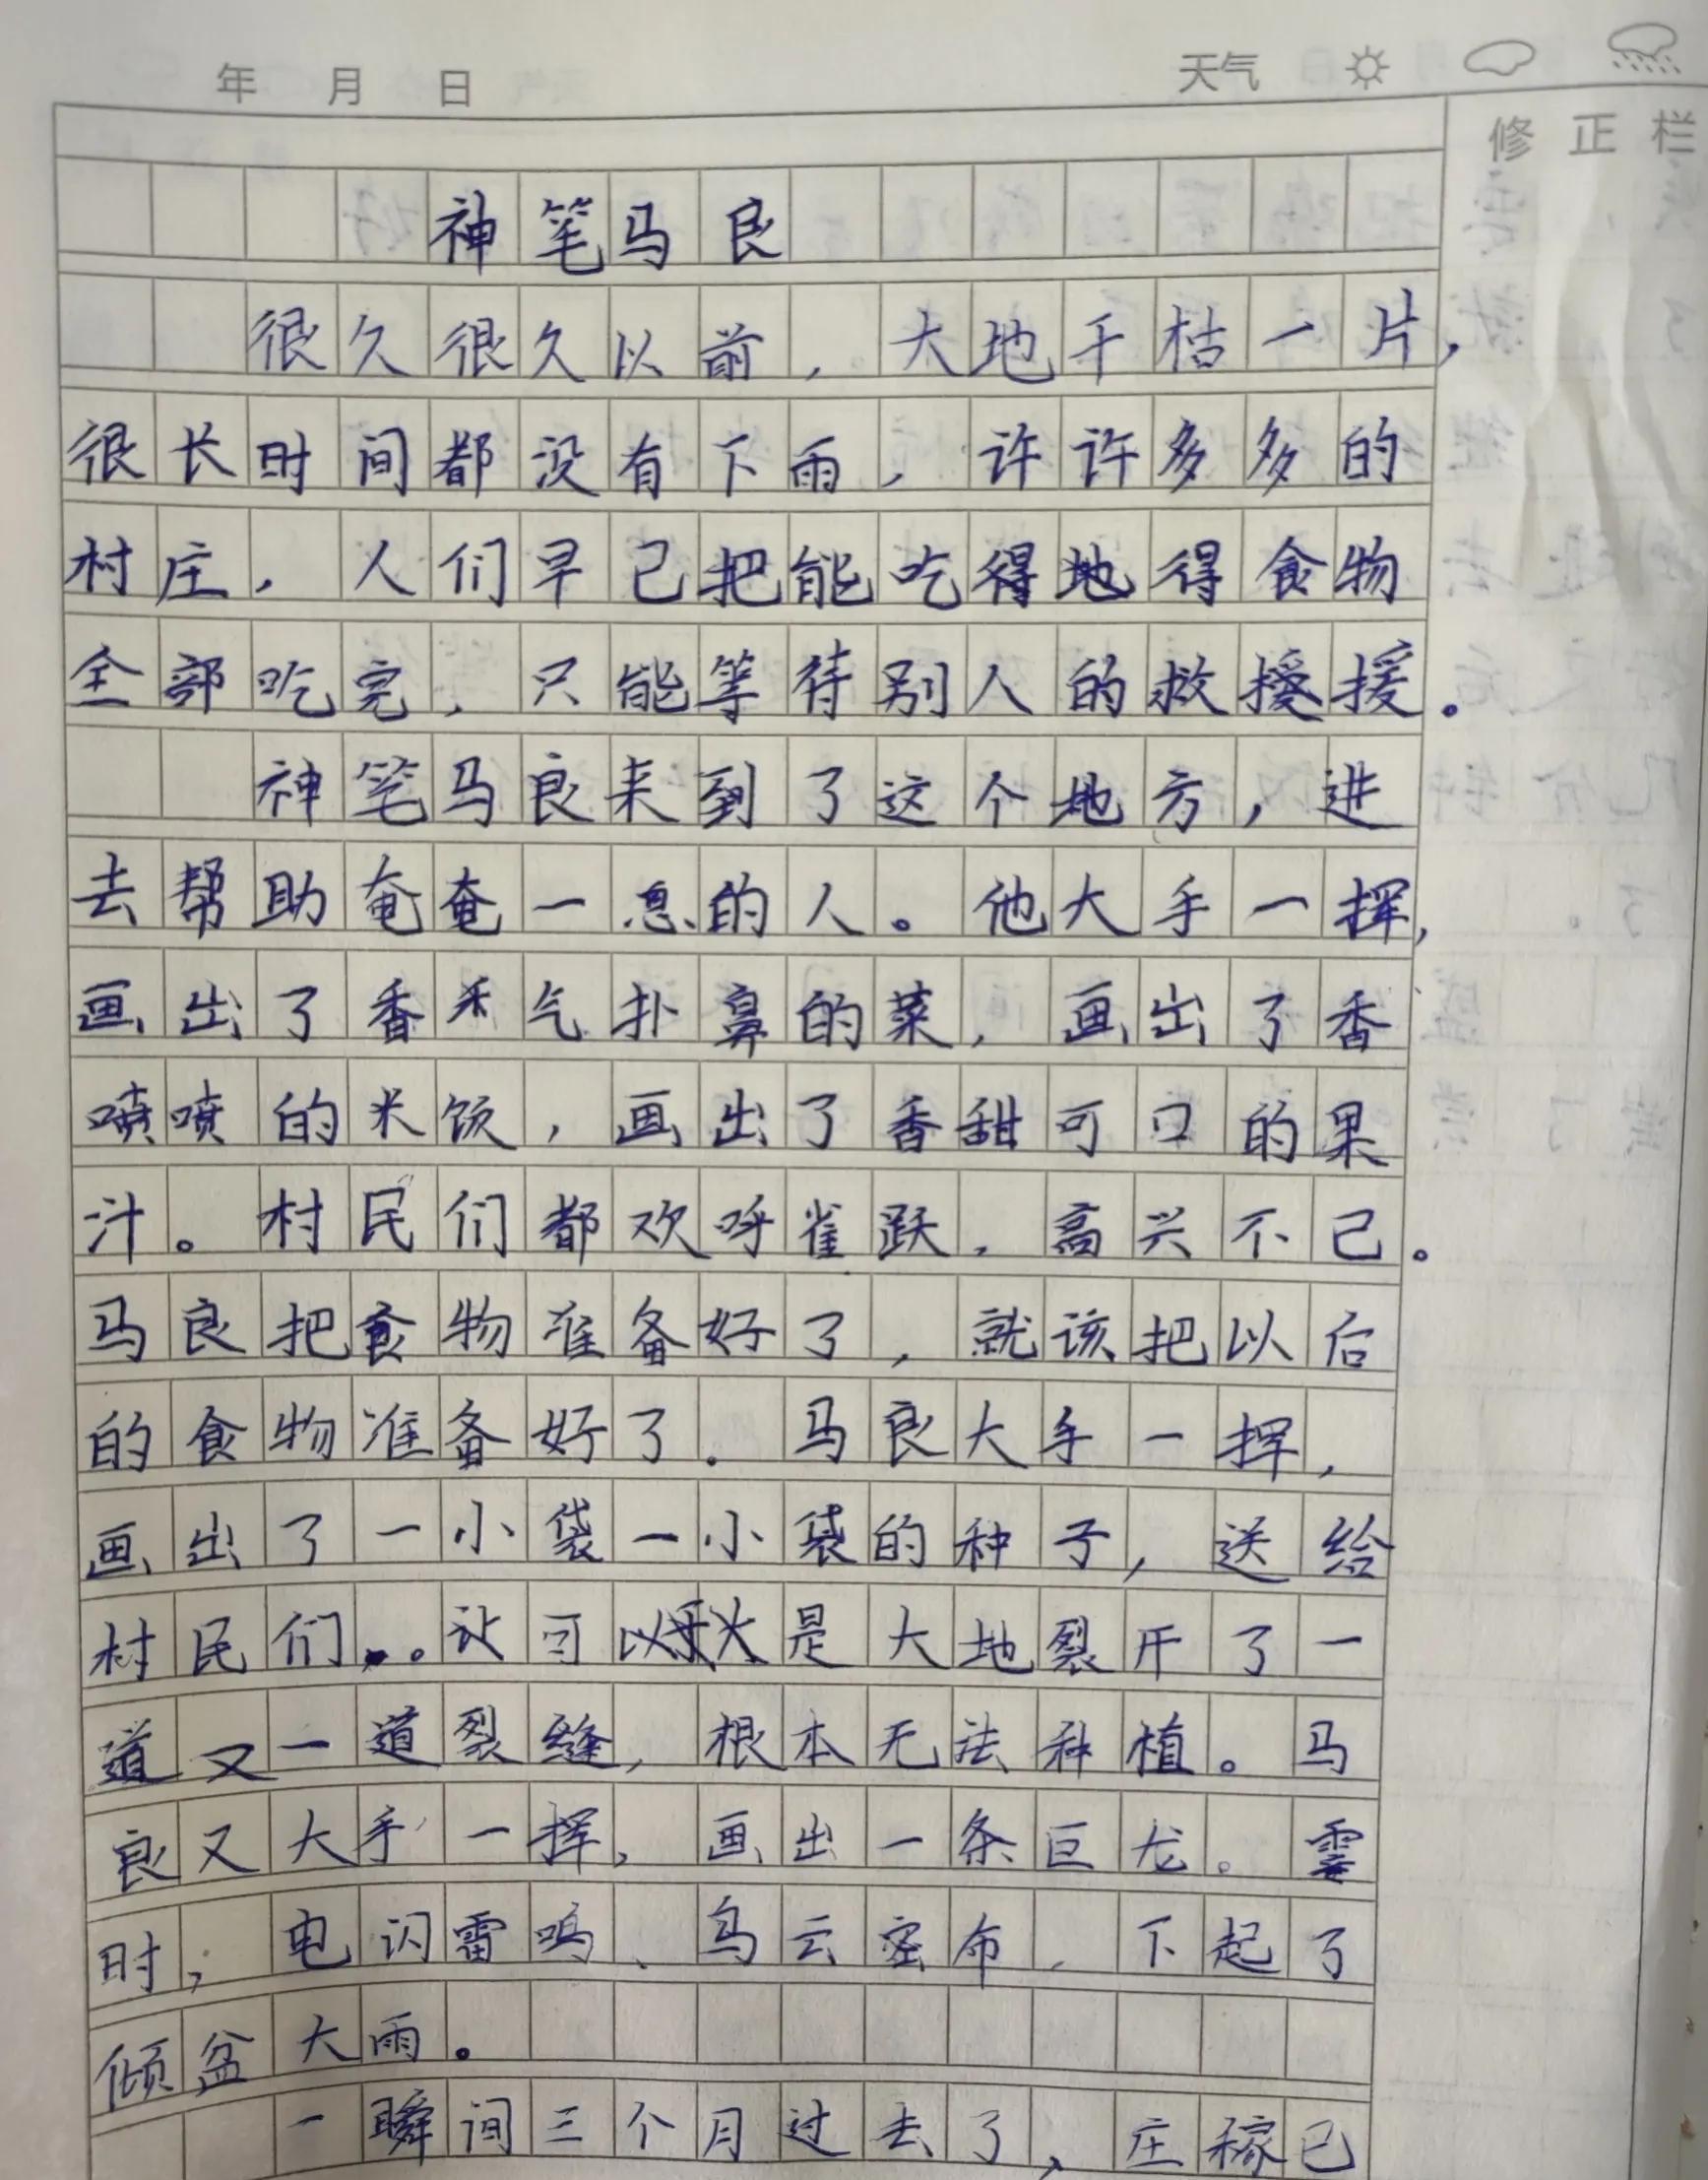 年 月 日 天气
修正栏
神笔马良
很久很久以前，大地干枯一片，
很长时间都没有下雨，许许多多的
村庄，人们早已把能吃得地得食物
全部吃完，只能等待别人的救援援。
神笔马良来到了这个地方，进
去帮助奄奄一息的人。他大手一挥，
画出了香禾气扑鼻的菜，画出了香
喷喷的米饭，画出了香甜可口的果
汁。村民们都欢呼雀跃，高兴不已。
马良把食物准备好了，就该把以后
的食物准备好了．马良大手一挥，
画出了一小袋一小袋的种子，送给
村民们。让可以是大地裂开了一
道又一道裂缝，根本无法种植。马
良又大手一挥，画出一条巨龙。霎
时，电闪雷鸣、乌云密布，下起了
倾盆大雨。
一瞬间三个月过去了、庄稼已